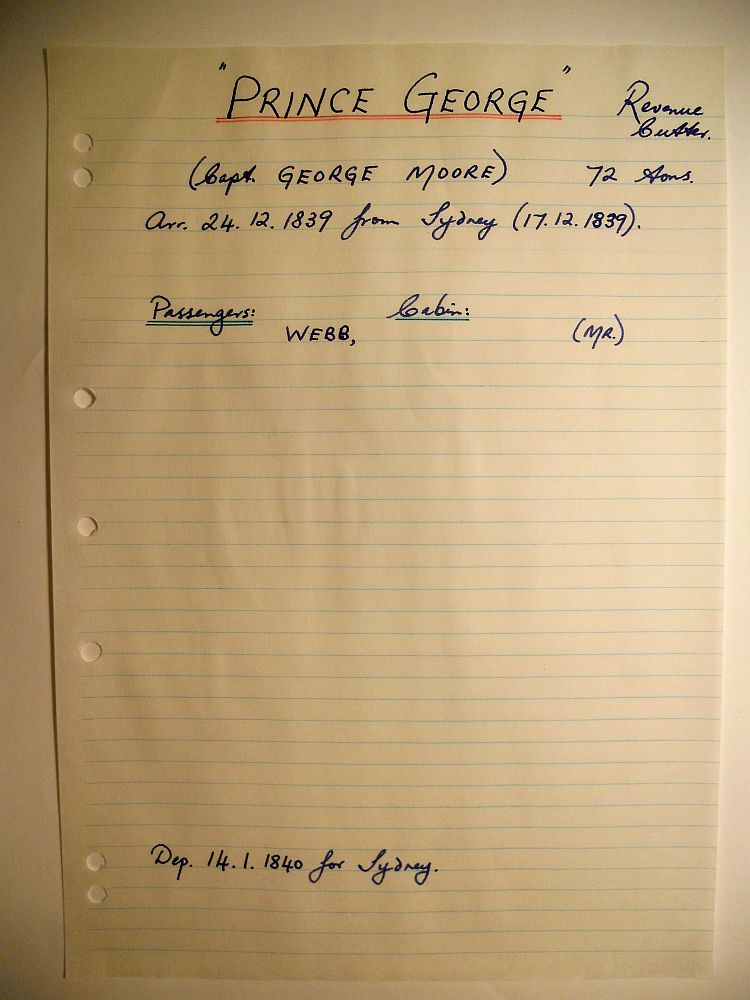 "PRINCE GEORGE" Revenue
Cutter.
(Capt. GEORGE MOORE) 72 tons.
Arr. 24.12.1839 from Sydney (17.12.1839).
Passengers: Cabin:
WEBB, (MR.)
Dep. 14.1.1840 for Sydney.